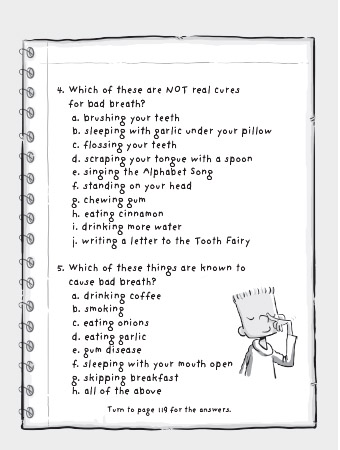 4. Which of these are NOT real cures
for bad breath?
a. brushing your teeth
b. sleeping with garlic under your pillow
c. flossing your teeth
d. scraping your tongue with a spoon
e. singing the Alphabet Song
f. standing on your head
g. chewing gum
h. eating cinnamon
i. drinking more water
j. writing a letter to the Tooth Fairy
5. Which of these things are known to
cause bad breath?
a. drinking coffee
b. smoking
c. eating onions
d. eating garlic
e. gum disease
f. sleeping with your mouth open
g. skipping breakfast
h. all of the above
Turn to page 119 for the answers.